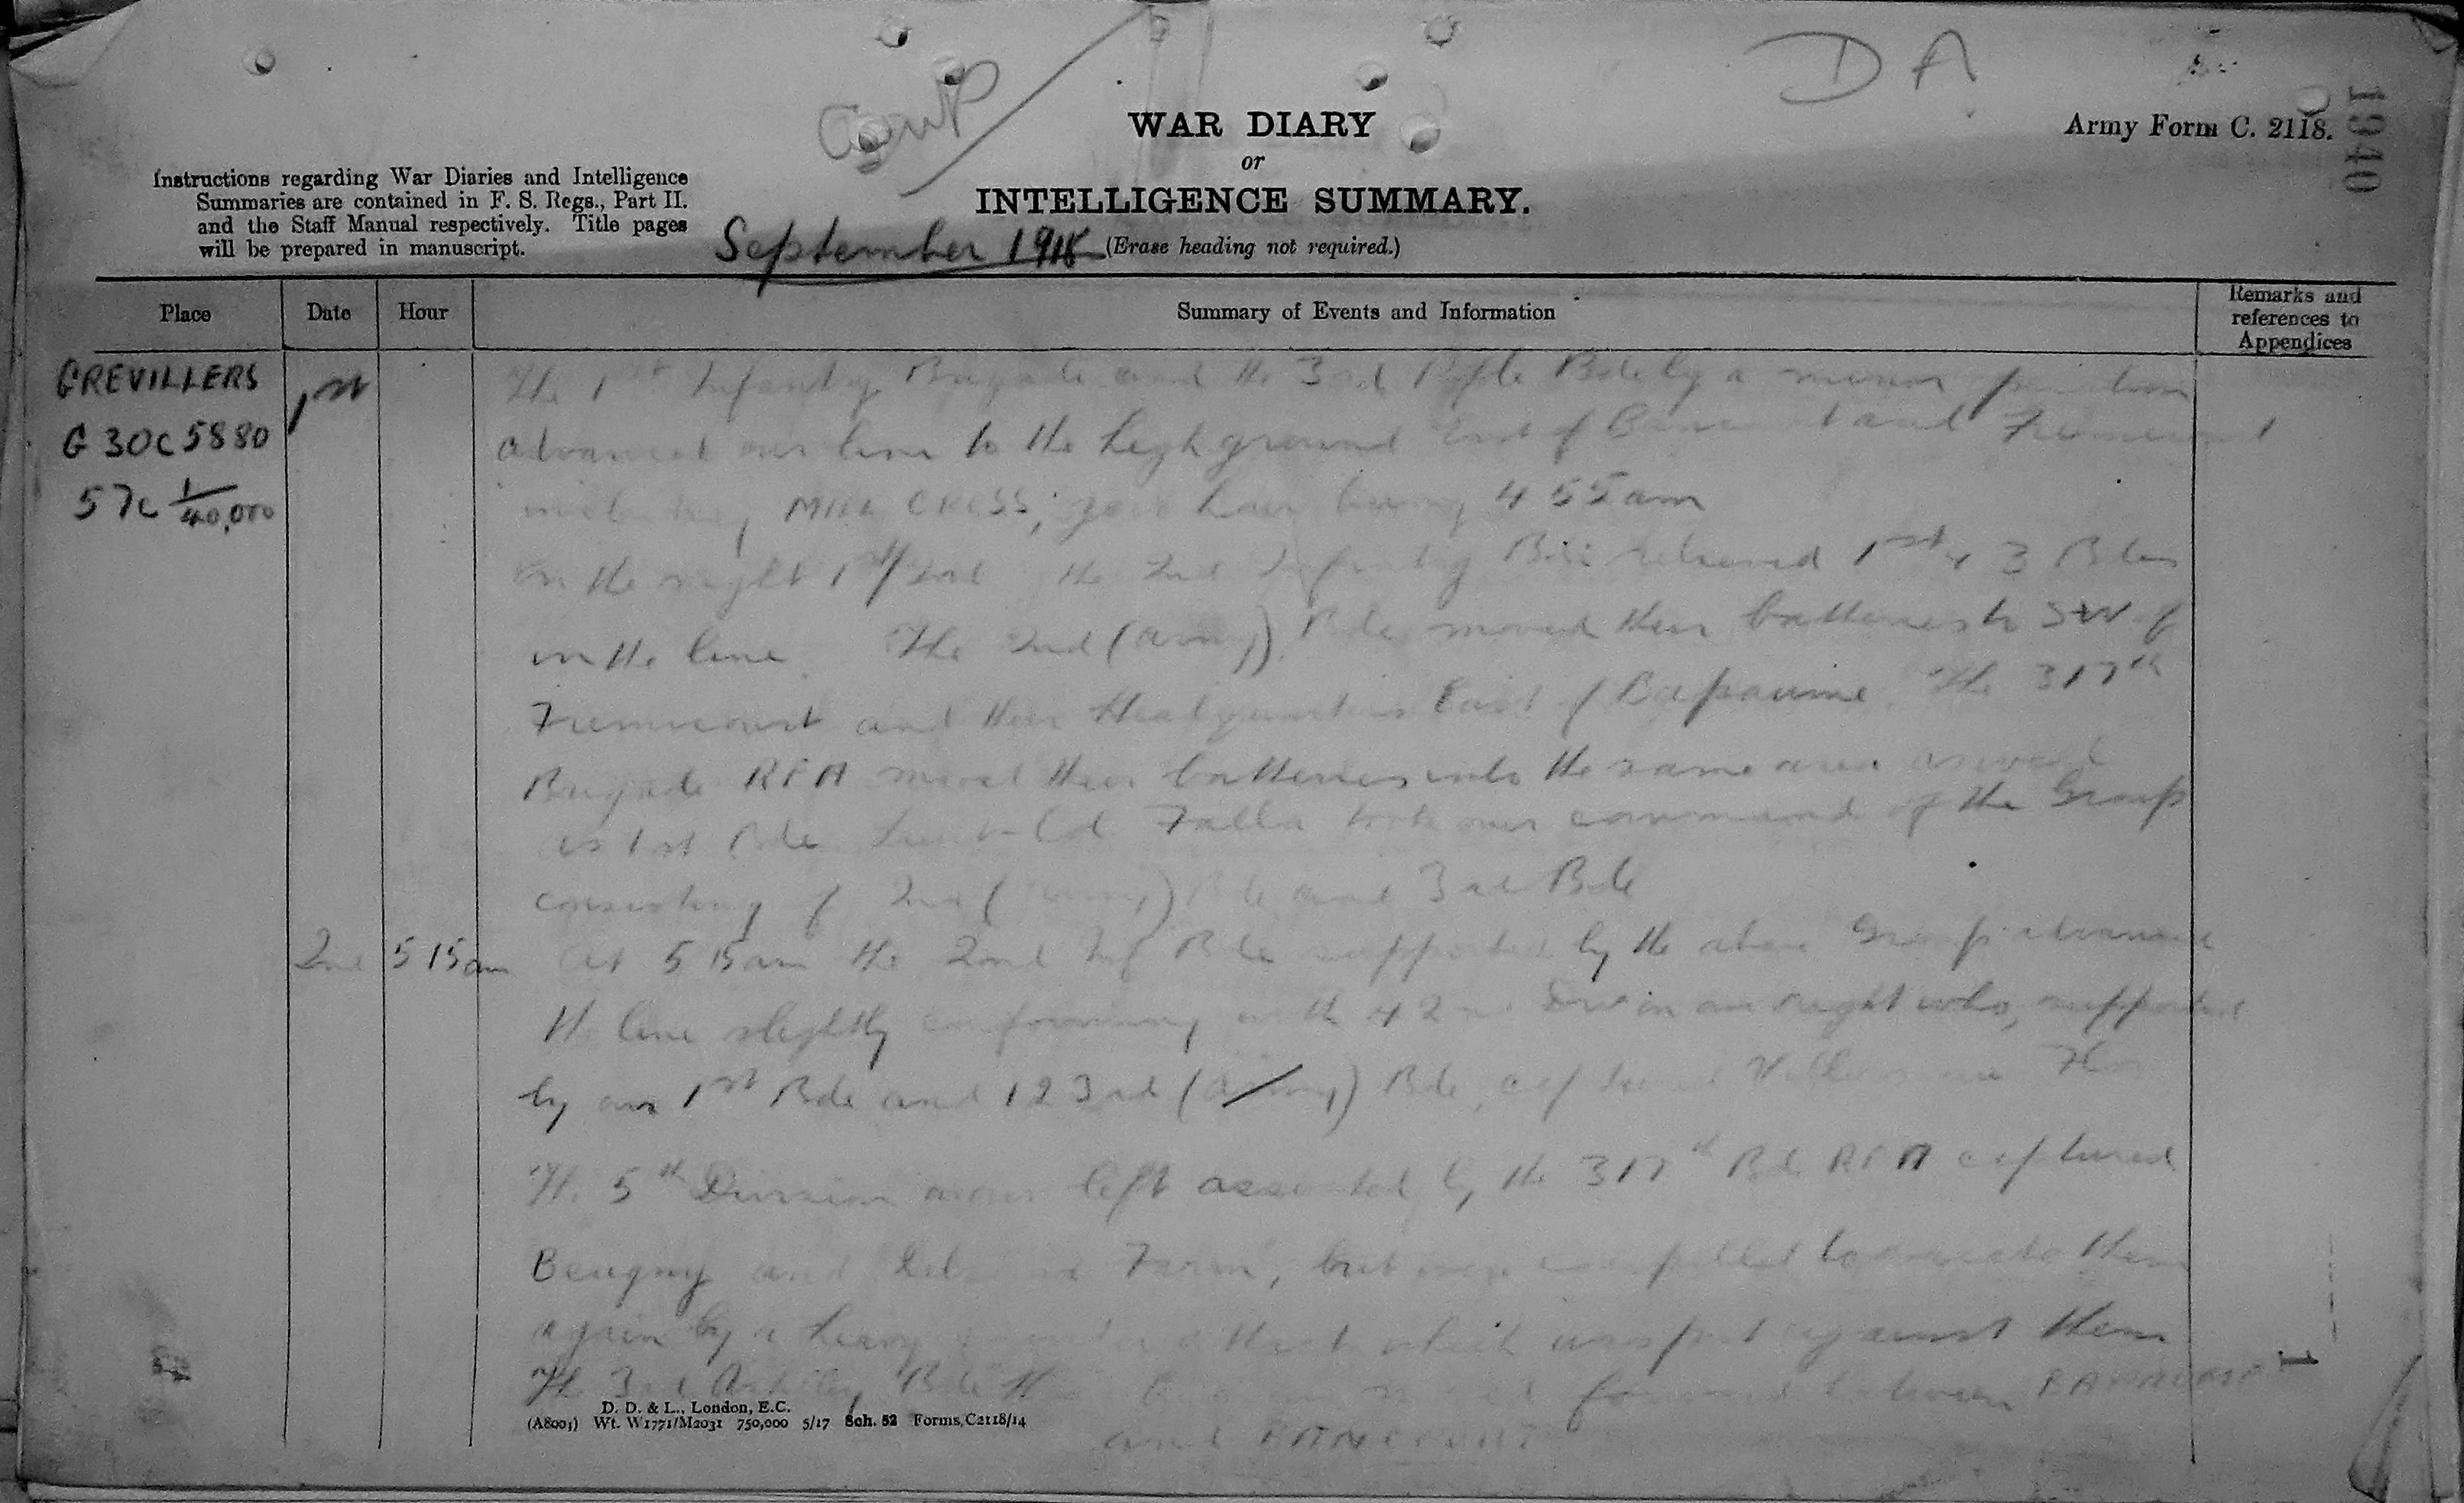 Comp
DA
1940
WAR DIARY
or
INTELLIGENCE SUMMARY.
Army Form C. 2118.
Instructions regarding War Diaries and Intelligence
Summaries are contained in F. S. Regs., Part II.
and the Staff Manual respectively. Title pages
will be prepared in manuscript.
September 1918 (Erase heading not required.)
Place
Date
Hour
Summary of Events and Information
Remarks and
references to
Appendices
GREVILLERS
G 30C 5880
57c 1/40,000
1st
The 1st Infantry Brigade and the 3rd Rifle Bde by a minor operation
advanced our line to the high ground East of Bancourt and Fremicourt
including MILL CROSS, zero hour being 4 55 am
On the night 1st/2nd the 2nd Infantry Bde relieved 1st & 3 Bdes
in the line. The 2nd (Army) Bde moved their batteries to SW of
Fremicourt and their Headquarters East of Bapaume. The 317th
Brigade RFA moved their batteries into the same area as
as 1st Bde Lieut-Col Falla took over command of the Group
consisting of 2nd (Army) Bde and 3rd Bde
2nd 5 15am At 5 15am the 2nd Inf Bde supported by the above Group advanced
the line slightly conforming with 42nd Div on our right who, supported
by our 1st Bde and 123rd (Army) Bde, captured Villers au Flos
The 5th Division on our left assisted by the 317th Bde RFA captured
Beugny and Farm, but were compelled to evacuate them
again by a heavy counter attack which was put against them
The 3rd Artillery Bde forward between BAPAUME
and BANCOURT
1
D. D. & L., London, E.C.
(A8001) Wt. W1771/M2031 750,000 5/17 Sch. 52 Forms, C2118/14